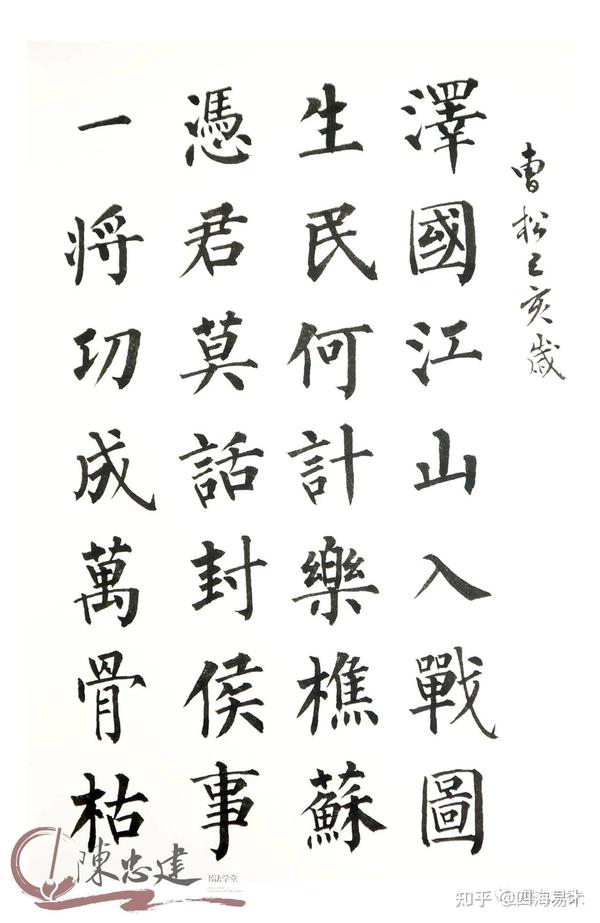 曹松己亥歲
澤國江山入戰圖
生民何計樂樵蘇
憑君莫話封侯事
一将功成萬骨枯
陳忠建
书法学堂
知乎 @四海易木